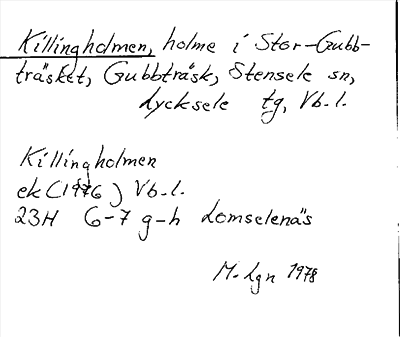 Killingholmen, holme i Stor-Gubb-
träsket, Gubbträsk, Stensele sn,
Lycksele tg, Vb.l.
Killingholmen
ek (1976) Vb.l.
23H 6-7 g-h Lomselenäs
M. Lgn 1978